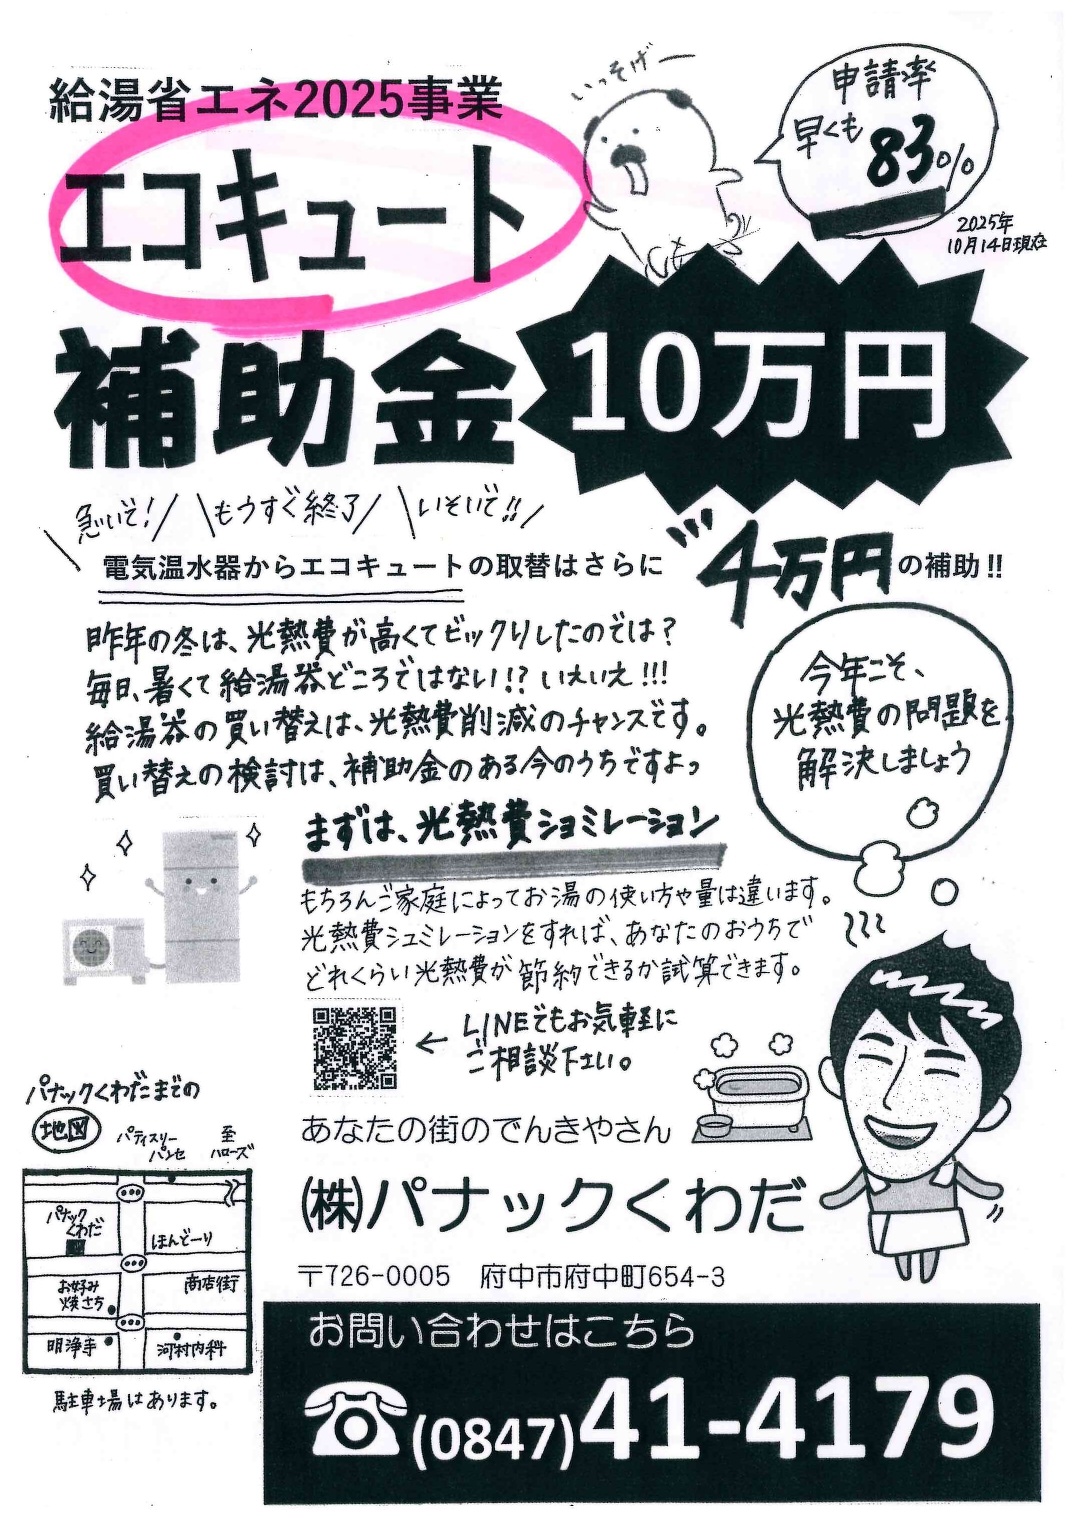 給湯省エネ2025事業
いっそげー
申請率
早くも
83%
2025年
10月14日現在
エコキュート
補助金
10万円
急いで!/ \もうすぐ終了/ \いそいで!!/
電気温水器からエコキュートの取替はさらに
4万円の補助!!
昨年の冬は、光熱費が高くてビックリしたのでは?
毎日、暑くて給湯器どころではない!? いえいえ!!!
給湯器の買い替えは、光熱費削減のチャンスです。
買い替えの検討は、補助金のある今のうちですよっ
今年こそ、
光熱費の問題を
解決しましょう
まずは、光熱費ショミレーション
もちろんご家庭によってお湯の使い方や量は違います。
光熱費シュミレーションをすれば、あなたのおうちで
どれくらい光熱費が節約できるか試算できます。
← LINEでもお気軽に
ご相談下さい。
あなたの街のでんきやさん
㈱パナックくわだ
〒726-0005 府中市府中町654-3
パナックくわだまでの
地図
パティスリー
パンセ
至
ハローズ
パナック
くわだ
ほんどーり
お好み
焼さち
商店街
明浄寺
河村内科
駐車場はあります。
お問い合わせはこちら
(0847)41-4179